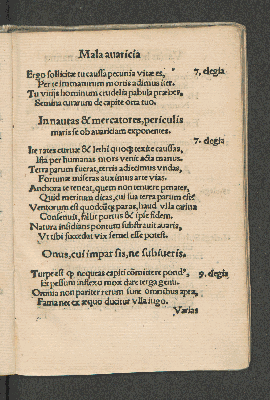 Mala auaricia
Ergo sollicitæ tu caussa pecunia vitæ es, 7. elegia
Per te immaturum mortis adimus iter.
Tu vitijs hominum crudelia pabula præbes,
Semina curarum de capite orta tuo.
In nautas & mercatores, periculis
maris se ob auariciam exponentes.
7. elegia
Ite rates curuæ & lethi quoq; texite caussas,
Ista per humanas mors venit acta manus.
Terra parum fuerat, terris adiecimus vndas,
Fortunæ miseras auximus arte vias.
Anchora te teneat, quem non tenuere penates,
Quid meritum dicas, cui sua terra parum est?
Ventorum est quodcūq; paras, haud vlla carina
Consenuit, fallit portus & ipse fidem.
Natura insidians pontum substrauit auaris,
Vt tibi succedat vix semel esse potest.
Onus, cui impar sis, ne subiueris.
Turpe est qd nequeas capiti cōmittere pond9, 9. elegia
Et pessum inflexo mox dare terga genu.
Omnia non pariter rerum sunt omnibus apta,
Fama nec ex æquo ducitur vlla iugo.
Varias